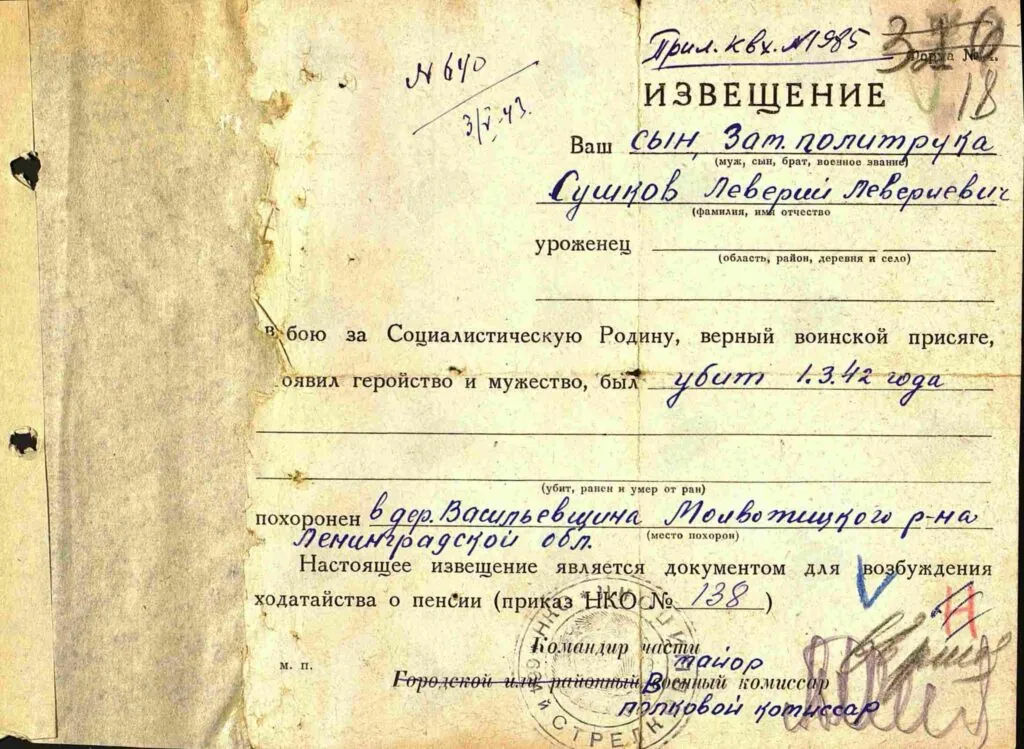 Прил. к вх. №1985
№ 640
3/V-43.
376
Форма № 4.
18
ИЗВЕЩЕНИЕ
Ваш сын, Зам. политрука
(муж, сын, брат, военное звание)
Сушков Леверий Левериевич
(фамилия, имя отчество
уроженец
(область, район, деревня и село)
в бою за Социалистическую Родину, верный воинской присяге,
оявил геройство и мужество, был убит 1.3.42 года
(убит, ранен и умер от ран)
похоронен в дер. Васильевщина Молвотицкого р-на
(место похорон)
Ленинградской обл.
Настоящее извещение является документом для возбуждения
ходатайства о пенсии (приказ НКО № 138 )
Н
Командир части
майор
м. п.
Городской или районный Военный комиссар
полковой комиссар
НКО
СТРЕЛК